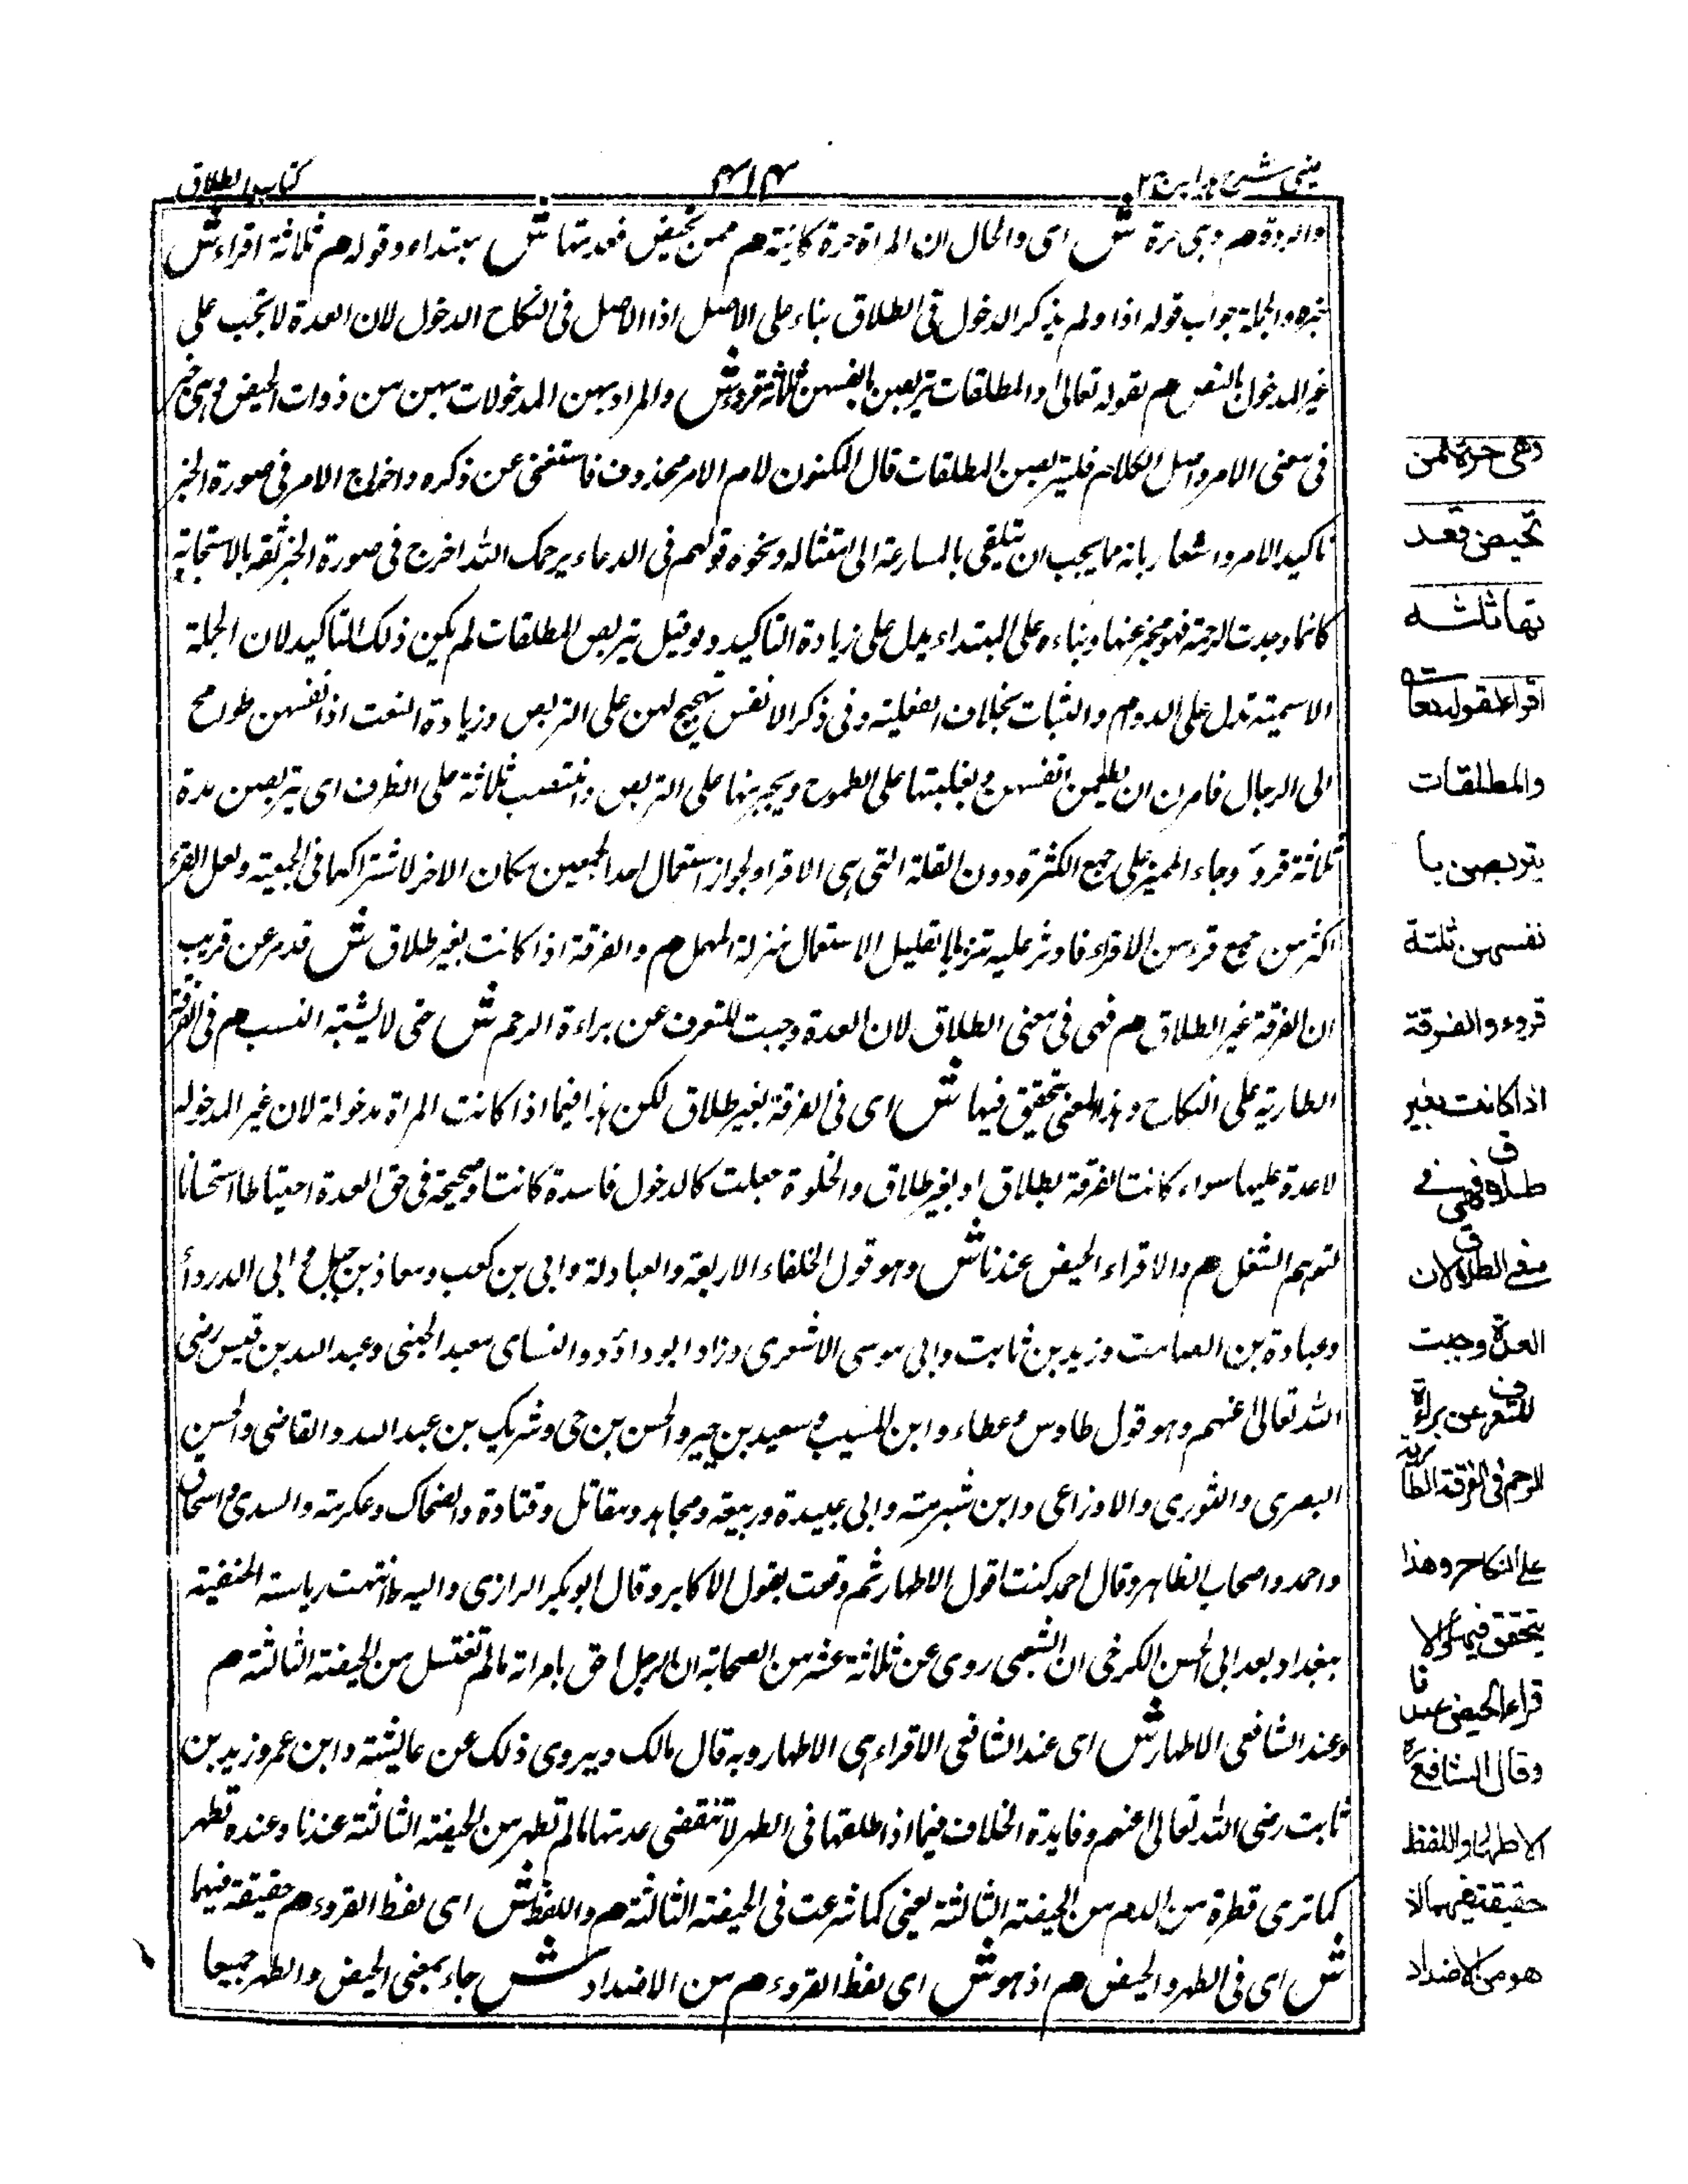 عینی شرح ہدایہ ج ٢
٤١٤
کتاب الطلاق
والردة هم وهي حرة ش اى والحال ان المراة حرة كاينة هم ممن تحيض فعدتها ش مبتداء وقوله هم ثلاثة اقراء ش
خبره والجملة جواب قوله اذا ولم يذكر الدخول فى الطلاق بناء على الاصل اذ الاصل فى النكاح الدخول لان العدة لا تجب على
غير المدخول بالنص هم لقوله تعالى والمطلقات يتربصن بانفسهن ثلاثة قروء ش والمراد بهن المدخولات بهن من ذوات الحيض وهى خبر
فى معنى الامر واصل الكلام فليتربصن المطلقات قال لام الامر محذوف فاستغنى عن ذكره واخراج الامر فى صورة الخبر
تاكيد الامر واشعار بانه مما يجب ان تتلقى بالمسارعة الى امتثاله ونحوه قولهم فى الدعاء يرحمك الله اخرج فى صورة الخبر ثقة بالاستجابة
كانما وجدت الرحمة فهو مخبر عنها وبناءه على المبتداء يدل على زيادة التاكيد ولو قيل يتربص المطلقات لم يكن ذلك التاكيد لان الجملة
الاسمية تدل على الدوام والثبات بخلاف الفعلية وفى ذكر الانفس تهييج لهن على التربص وزيادة البعث اذ انفسهن طوامح
الى الرجال فامرن ان يقمعن انفسهن ويغلبنها على الطموح ويجبرنها على التربص وانتصب ثلاثة على الظرف اى يتربصن مدة
ثلاثة قروء وجاء المميز على جمع الكثرة دون القلة التى هى الاقراء لجواز استعمال احد الجمعين مكان الاخر لاشتراكهما فى الجمعية ولعل القروء
اكثر من جمع قرء من الاقراء فاوثر عليه تنزيلا لقليل الاستعمال منزلة المهمل هم والفرقة اذا كانت بغير طلاق ش قد مر عن قريب
ان الفرقة غير الطلاق هم فهى فى معنى الطلاق لان العدة وجبت للتعرف عن براءة الرحم ش حتى لا يشتبه النسب هم فى الفرقة
الطارية على النكاح وهذا المعنى يتحقق فيها ش اى فى الفرقة بغير طلاق لكن هذا فيما اذا كانت المراة مدخولة لان غير المدخولة
لا عدة عليها سواء كانت الفرقة بطلاق او بغير طلاق والخلوة جعلت كالدخول فاسدة كانت او صحيحة فى حق العدة احتياطا استحسانا
لتوهم الشغل هم والاقراء الحيض عندنا ش وهو قول الخلفاء الاربعة والعبادلة وابى بن كعب ومعاذ بن جبل وابى الدرداء
وعبادة بن الصامت وزيد بن ثابت وابى موسى الاشعرى وزاد ابو داؤد والنساى معبد الجهنى وعبد الله بن قيس رضى
الله تعالى عنهم وهو قول طاوس وعطاء وابن المسيب وسعيد بن جبير والحسن بن حى وشريك بن عبد الله والقاضى والحسن
البصرى والثورى والاوزاعى وابن شبرمة وابى عبيدة وربيعة ومجاهد ومقاتل وقتادة والضحاك وعكرمة والسدى واسحاق
واحمد واصحاب الظاهر وقال احمد كنت اقول الاطهار ثم وقعت بقول الاكابر وقال ابو بكر الرازى واليه انتهت رياسة الحنفية
ببغداد بعد ابى الحسن الكرخى ان الشعبى روى عن ثلاثة عشر من الصحابة ان الرجل احق بامراته مالم تغتسل من الحيضة الثالثة هم
وعند الشافعى الاطهار ش اى عند الشافعى الاقراء هى الاطهار وبه قال مالك ويروى ذلك عن عايشة وابن عمر وزيد بن
ثابت رضى الله تعالى عنهم وفايدة الخلاف فيما اذا طلقها فى الطهر لا تنقضى عدتها مالم تطهر من الحيضة الثالثة عندنا وعنده تطهر
كما ترى قطرة من الدم من الحيضة الثالثة يعنى كما شرعت فى الحيضة الثالثة هم واللفظ ش اى لفظ القروء هم حقيقة فيهما
ش اى فى الطهر والحيض هم اذ هو ش اى لفظ القروء هم من الاضداد ش جاء بمعنى الحيض والطهر جميعا
وهى حرة ممن
تحيض فعد
تها ثلثة
اقراء لقوله تعا
والمطلقات
يتربصن با
نفسهن ثلثة
قروء والفرقة
اذا كانت بغير
طلاق فهى فے
معنے الطلاق لان
العدة وجبت
للتعرف عن براءة
الرحم فى الفرقة الطارية
على النكاح وهذا
يتحقق فيها والا
قراء الحيض عندنا
وقال الشافعے
الاطهار واللفظ
حقيقة فيهما اذ
هو من الاضداد